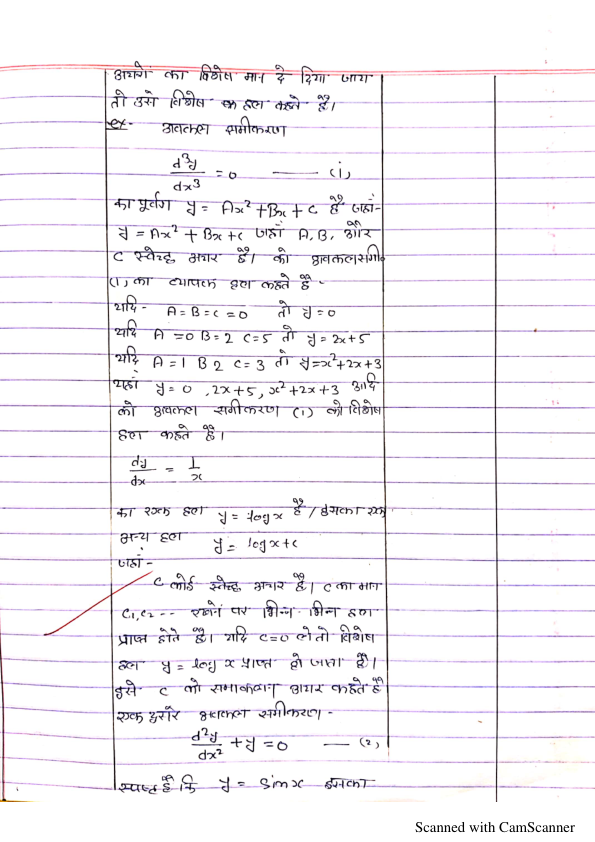 अचरों का विशेष मान दे दिया जाय
तो उसे विशेष हल कहते हैं।
ex- अवकल समीकरण
d³y/dx³ = 0 —— (1)
का पूर्वग y = Ax² + Bx + C है जहां-
y = Ax² + Bx + c जहाँ A, B, और
C स्वेच्छ अचर है। को अवकल समी०
(1) का व्यापक हल कहते है -
यदि - A = B = C = 0 तो y = 0
यदि A = 0 B = 2 C = 5 तो y = 2x + 5
यदि A = 1 B 2 C = 3 तो y = x² + 2x + 3
यहां y = 0 , 2x + 5, x² + 2x + 3 आदि
को अवकल समीकरण (1) को विशेष
हल कहते है।
dy/dx = 1/x
का एक हल y = log x है / इसका एक
अन्य हल y = log x + c
जहां -
C कोई स्वेच्छ अचर है। C का मान
C₁, C₂ -- रखने पर भिन्न भिन्न हल
प्राप्त होते है। यदि C = 0 ले तो विशेष
हल y = log x प्राप्त हो जाता है।
इसे C को समाकलन अचर कहते है
एक दूसरे अवकल समीकरण -
d²y/dx² + y = 0 — (2)
स्पष्ट है कि y = sin x इसका
Scanned with CamScanner